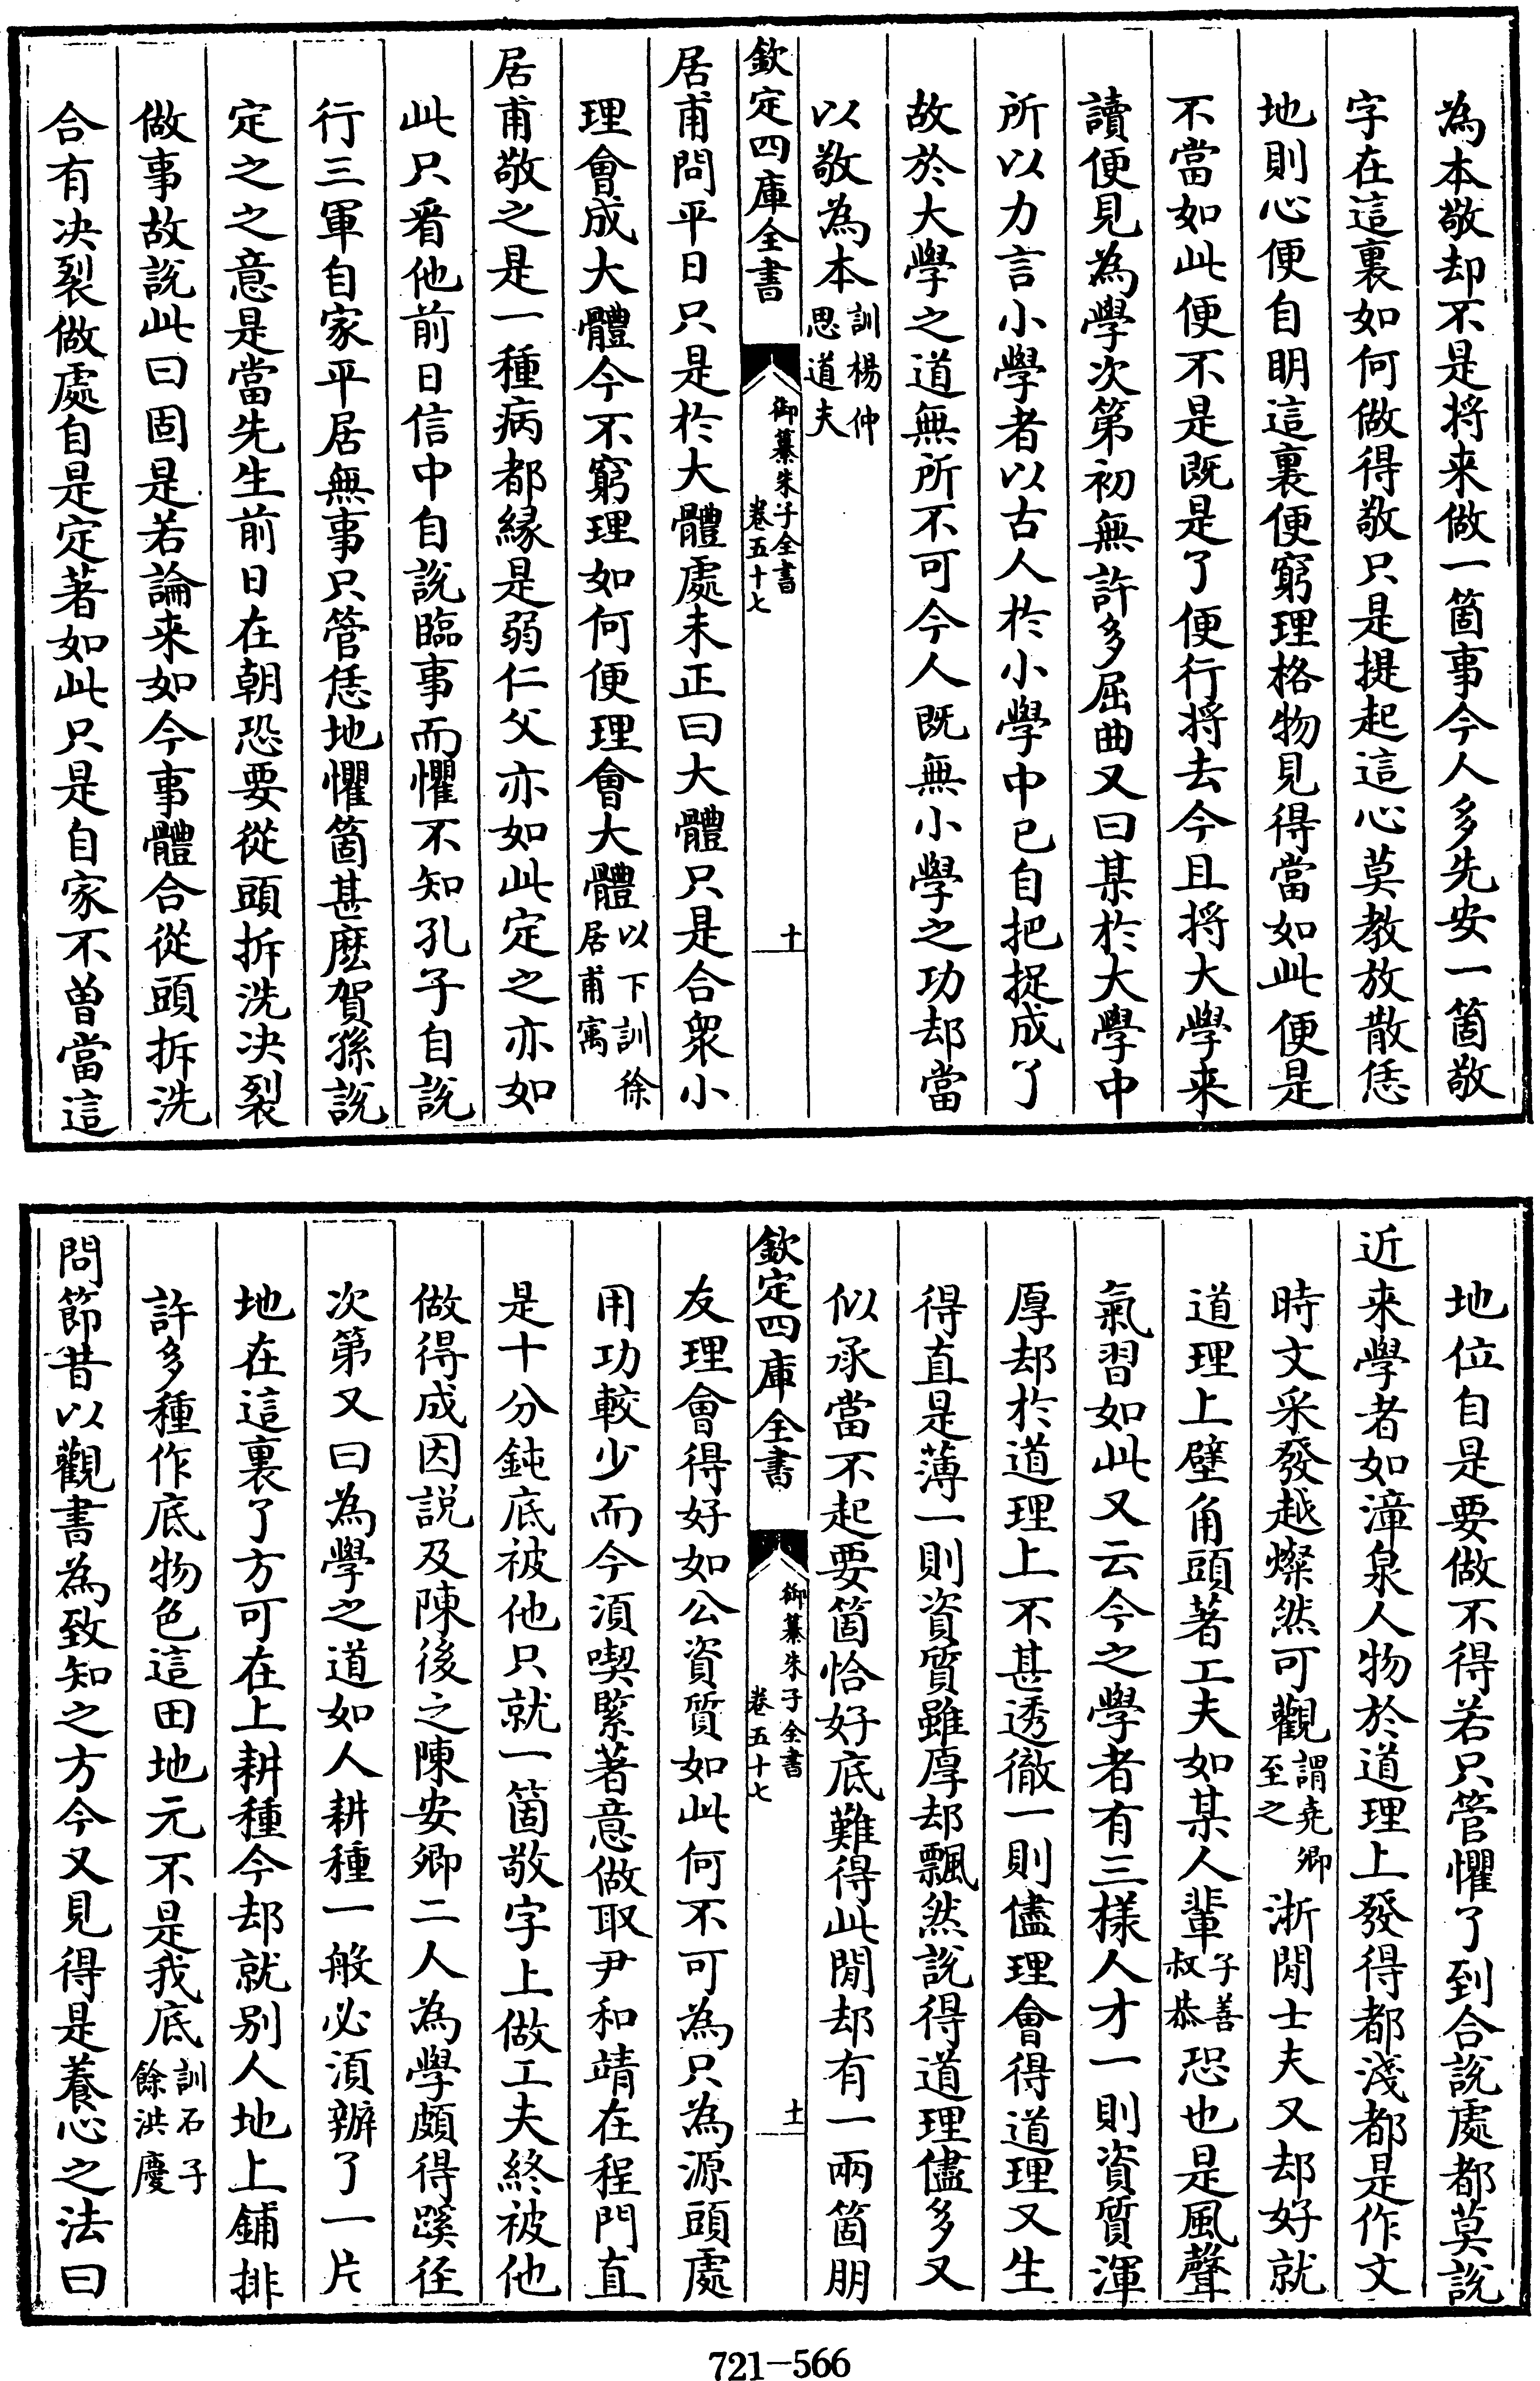 為本敬却不是将来做一箇事今人多先安一箇敬
字在這裏如何做得敬只是提起這心莫教放散恁
地則心便自明這裏便窮理格物見得當如此便是
不當如此便不是既是了便行将去今且将大學来
讀便見為學次第初無許多屈曲又曰某於大學中
所以力言小學者以古人於小學中已自把捉成了
故於大學之道無所不可今人既無小學之功却當
以敬為本訓楊仲思道夫
欽定四庫全書 御纂朱子全書 卷五十七 十
居甫問平日只是於大體處未正曰大體只是合衆小
理會成大體今不窮理如何便理會大體以下訓徐居甫㝢
居甫敬之是一種病都縁是弱仁父亦如此定之亦如
此只看他前日信中自說臨事而懼不知孔子自說
行三軍自家平居無事只管恁地懼箇甚麽賀孫說
定之之意是當先生前日在朝恐要從頭拆洗决裂
做事故說此曰固是若論来如今事體合從頭拆洗
合有决裂做處自是定著如此只是自家不曾當這
地位自是要做不得若只管懼了到合說處都莫說
近来學者如漳泉人物於道理上發得都淺都是作文
時文采發越燦然可觀謂堯卿至之浙閒士夫又却好就
道理上壁角頭著工夫如某人輩子善叔恭恐也是風聲
氣習如此又云今之學者有三樣人才一則資質渾
厚却於道理上不甚透徹一則儘理會得道理又生
得直是薄一則資質雖厚却飄然說得道理儘多又
似承當不起要箇恰好底難得此閒却有一兩箇朋
欽定四庫全書 御纂朱子全書 卷五十七 十一
友理會得好如公資質如此何不可為只為源頭處
用功較少而今須喫緊著意做取尹和靖在程門直
是十分鈍底被他只就一箇敬字上做工夫終被他
做得成因説及陳後之陳安卿二人為學頗得蹊徑
次第又曰為學之道如人耕種一般必須辦了一片
地在這裏了方可在上耕種今却就别人地上鋪排
許多種作底物色這田地元不是我底訓石子餘洪慶
問節昔以觀書為致知之方今又見得是養心之法曰
721-566